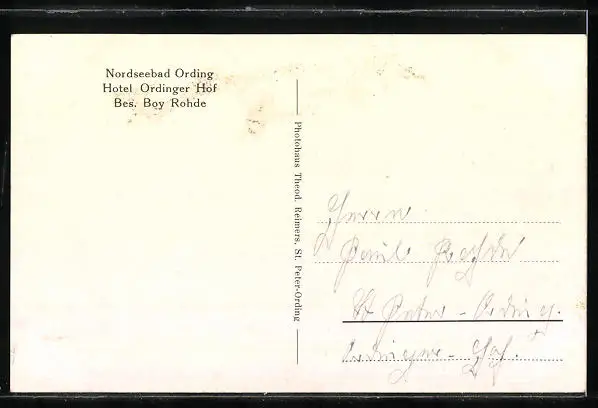 Nordseebad Ording
Hotel Ordinger Hof
Bes. Boy Rohde
Photohaus Theod. Reimers, St. Peter-Ording
Herrn
Paul
St Peter-Ording.
Ordinger-Hof.